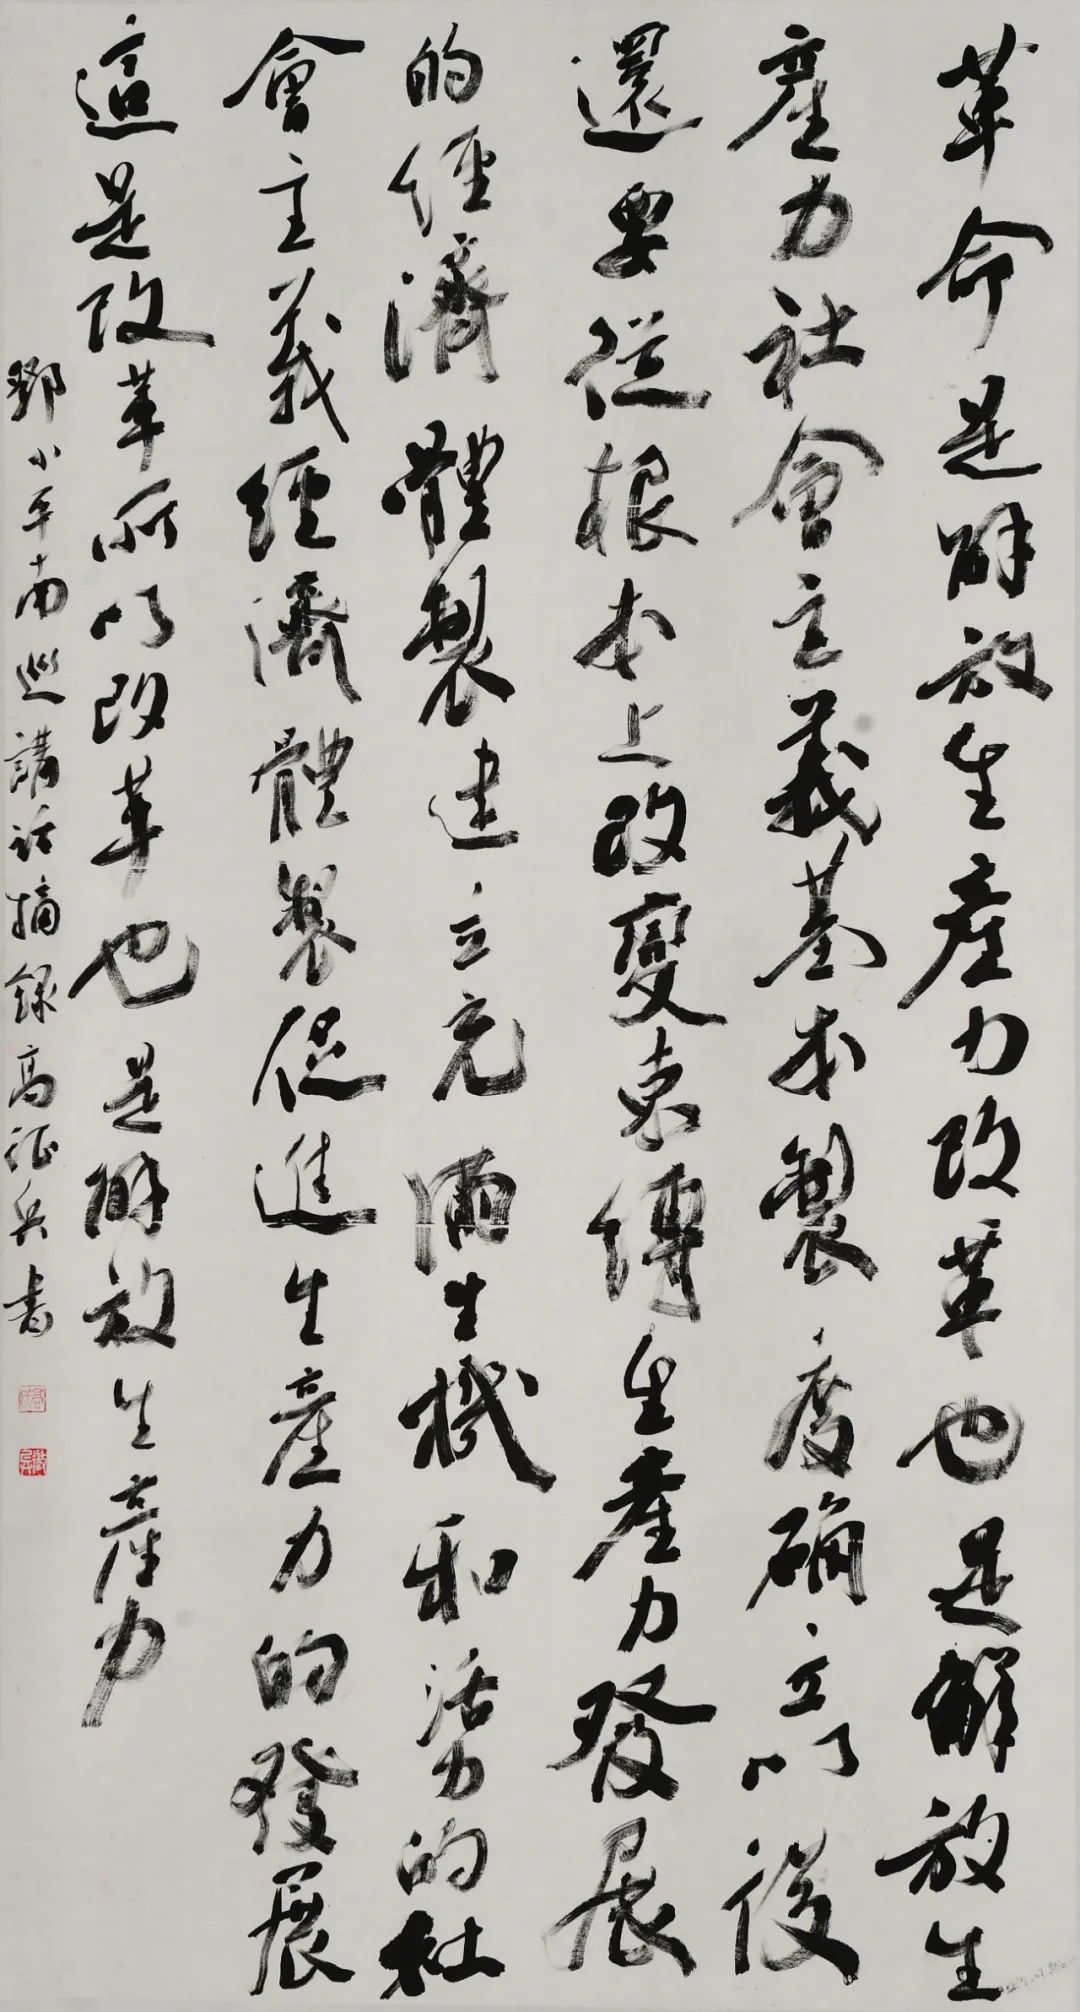 革命是解放生產力改革也是解放生
產力社會主義基本製度確立以後
還要從根本上改變束縛生產力發展
的經濟體製建立充滿生機和活力的社
會主義經濟體製促進生產力的發展
這是改革所以改革也是解放生產力
鄧小平南巡講話摘錄高征兵書